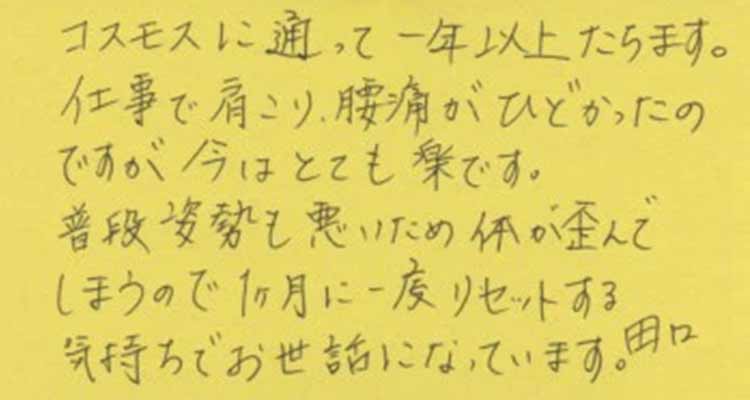 コスモスに通って一年以上たちます。
仕事で肩こり、腰痛がひどかったの
ですが今はとても楽です。
普段姿勢も悪いため体が歪んで
しまうので1ヶ月に一度リセットする
気持ちでお世話になっています。田口